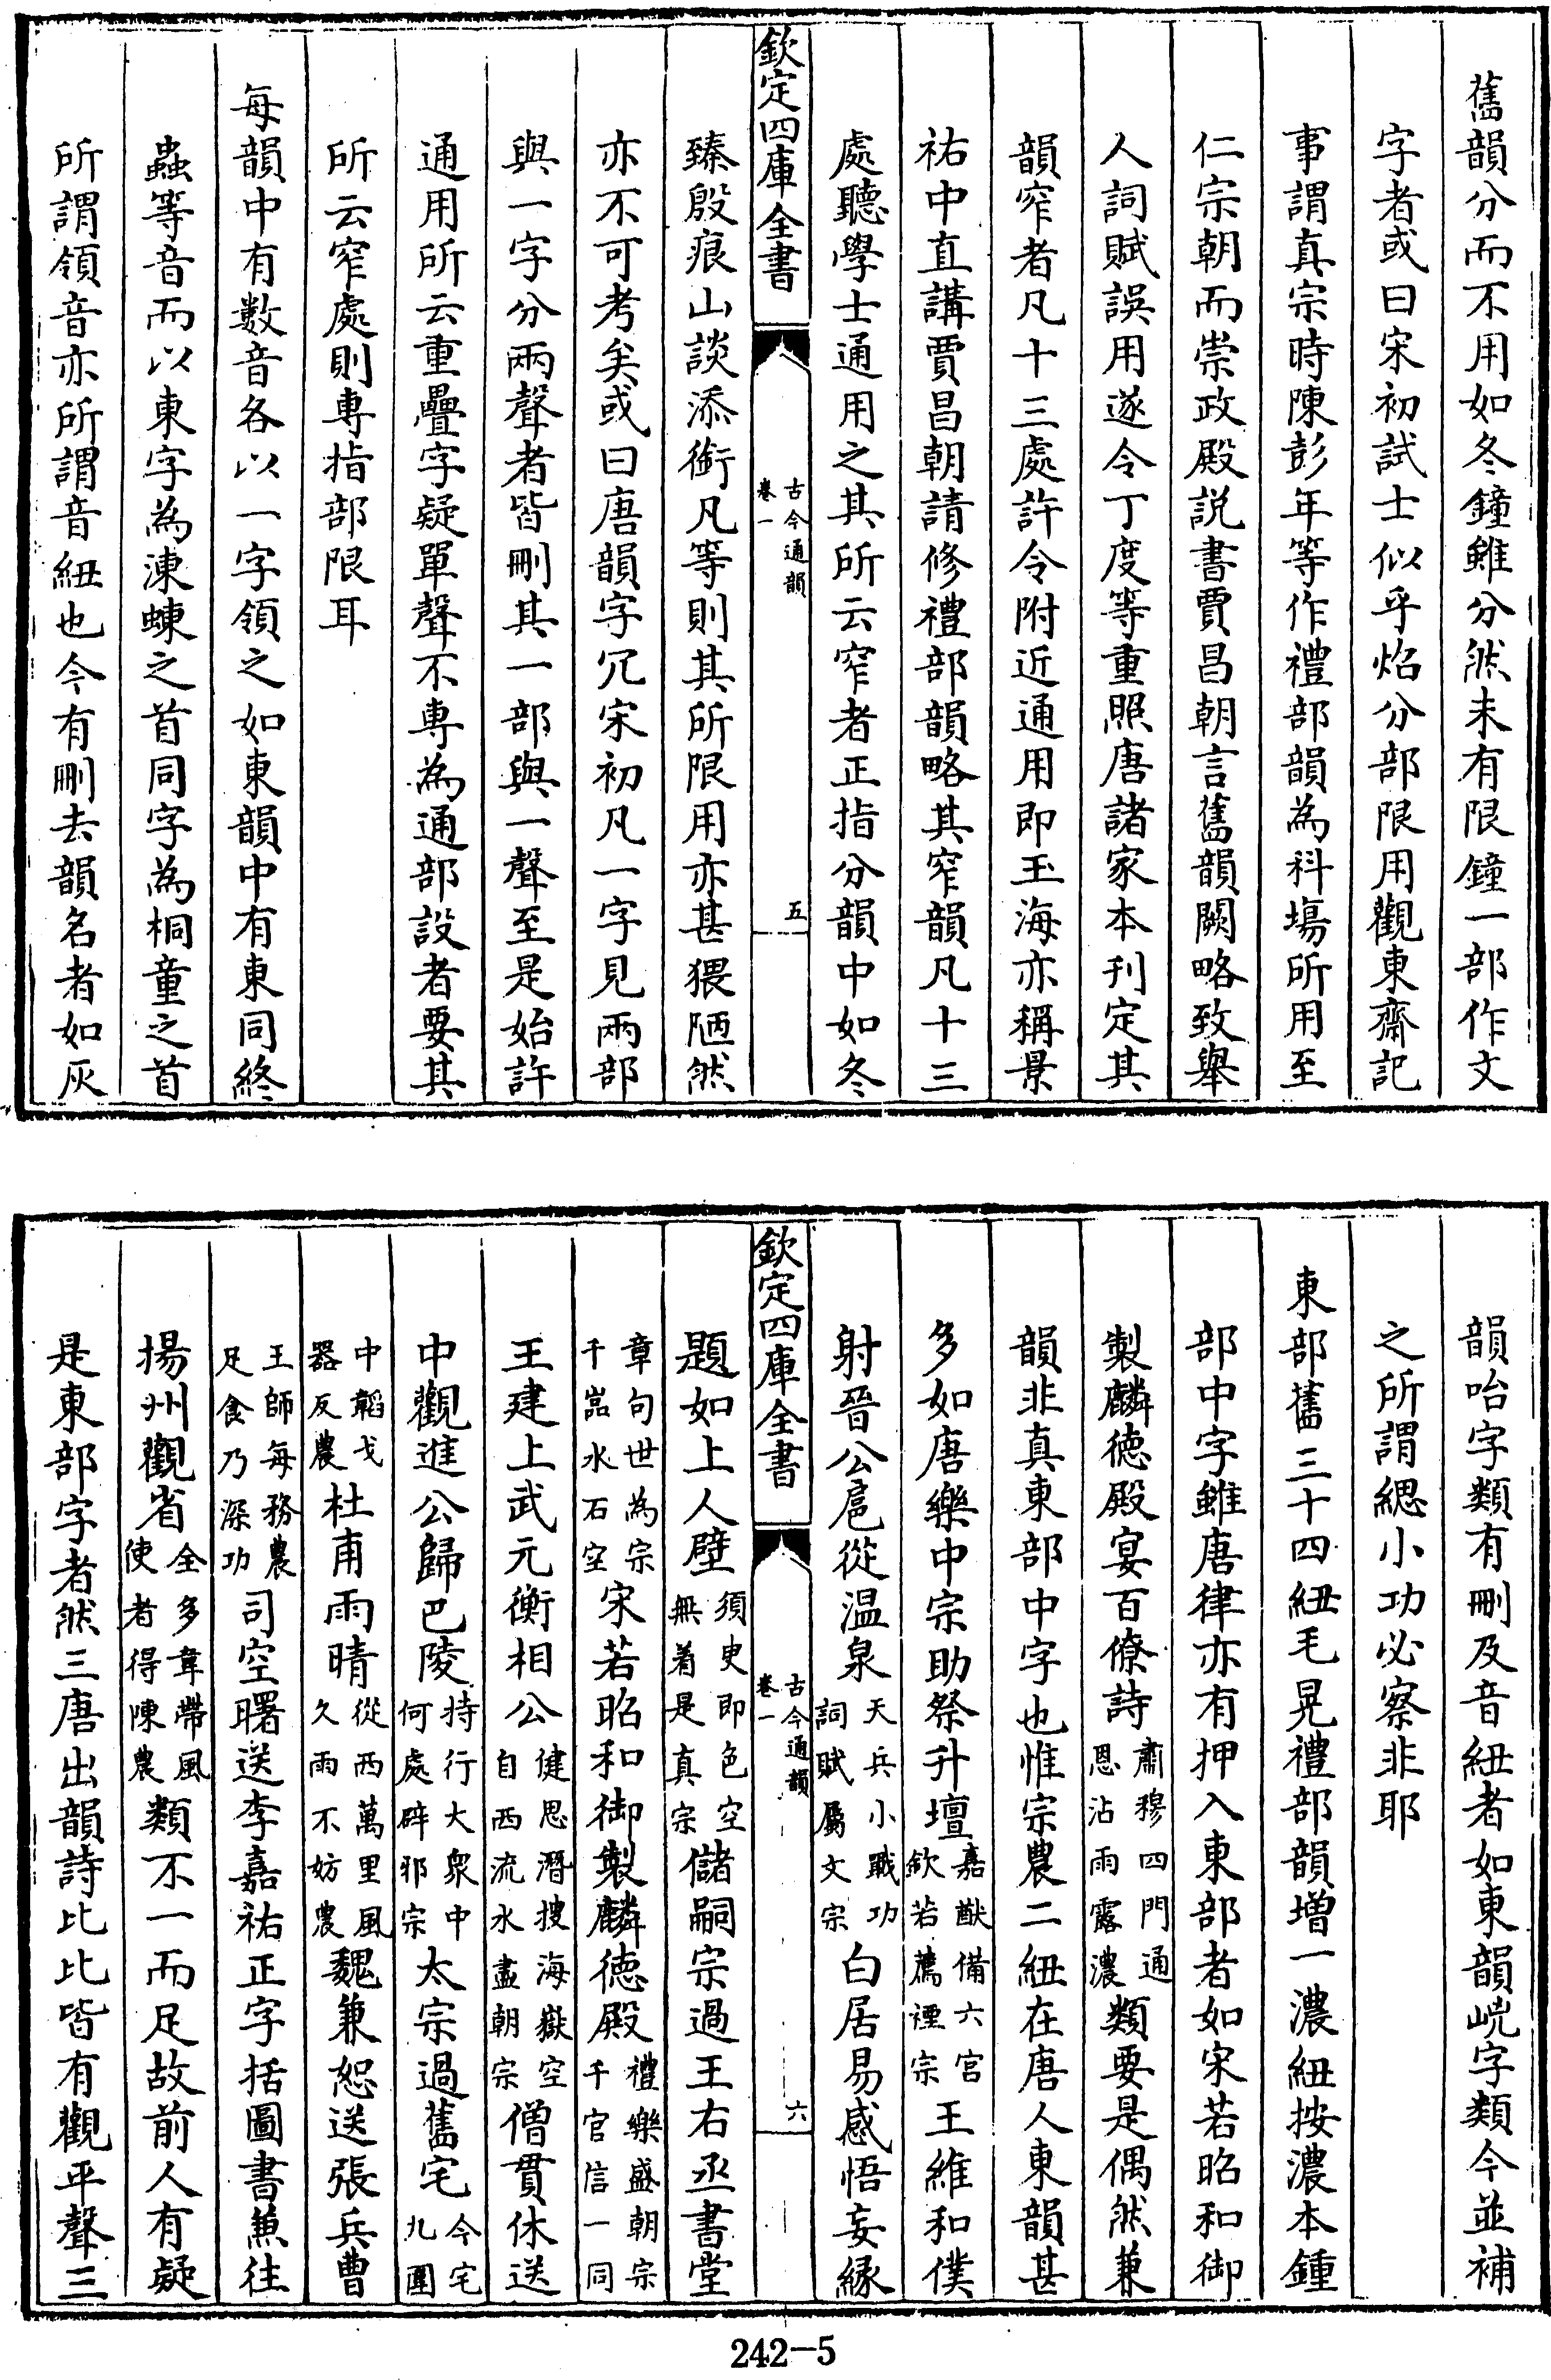 舊韻分而不用如冬鐘雖分然未有限鐘一部作文
字者或曰宋初試士似乎焰分部限用觀東齋記
事謂真宗時陳彭年等作禮部韻為科場所用至
仁宗朝而崇政殿説書賈昌朝言舊韻闕略致舉
人詞賦誤用遂令丁度等重照唐諸家本刊定其
韻窄者凡十三處許令附近通用即玉海亦稱景
祐中直講賈昌朝請修禮部韻略其窄韻凡十三
處聽學士通用之其所云窄者正指分韻中如冬
欽定四庫全書
古今通韻
卷一
五
臻殷痕山談添銜凡等則其所限用亦甚猥陋然
亦不可考矣或曰唐韻字冗宋初凡一字見兩部
與一字分兩聲者皆刪其一部與一聲至是始許
通用所云重疊字疑單聲不專為通部設者要其
所云窄處則專指部限耳
每韻中有數音各以一字領之如東韻中有東同終
蟲等音而以東字為涷蝀之首同字為桐童之首
所謂領音亦所謂音紐也今有刪去韻名者如灰
韻咍字類有刪及音紐者如東韻㟅字類今並補
之所謂緦小功必察非耶
東部舊三十四紐毛晃禮部韻增一濃紐按濃本鍾
部中字雖唐律亦有押入東部者如宋若昭和御
製麟德殿宴百僚詩肅穆四門通恩沾雨露濃類要是偶然兼
韻非真東部中字也惟宗農二紐在唐人東韻甚
多如唐樂中宗助祭升壇嘉猷備六宮欽若薦禋宗王維和僕
射晉公扈從温泉天兵小戰功詞賦屬文宗白居易感悟妄緣
欽定四庫全書
古今通韻
卷一
六
題如上人壁須臾即色空無着是真宗儲嗣宗過王右丞書堂
章句世為宗千嵓水石空宋若昭和御製麟德殿禮樂盛朝宗千官信一同
王建上武元衡相公健思潛搜海嶽空自西流水盡朝宗僧貫休送
中觀進公歸巴陵持行大衆中何處辟邪宗太宗過舊宅今宅九圍
中韜戈器反農杜甫雨晴從西萬里風久雨不妨農魏兼恕送張兵曹
王師每務農足食乃深功司空曙送李嘉祐正字括圖書兼往
揚州觀省全多韋帶風使者得陳農類不一而足故前人有疑
是東部字者然三唐出韻詩比比皆有觀平聲三
242-5